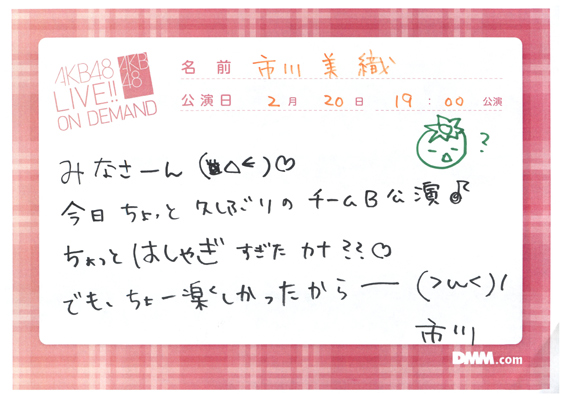 AKB48
LIVE!!
ON DEMAND
AKB
48
名前 市川美織
公演日 2月 20日 19:00公演
?
みなさーん ( △<)♡
今日ちょっと久しぶりのチームB公演♪
ちょっとはしゃぎすぎたカナ??♡
でも、ちょー楽しかったからー (>ω<)/
市川
DMM.com